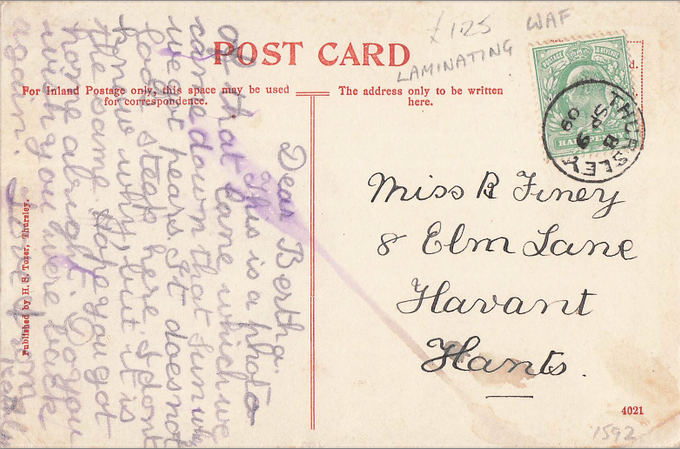 £1.25
WAF
LAMINATING
POST CARD
For Inland Postage only, this space may be used
for correspondence.
The address only to be written
here.
d.
HALFPENNY
THURSLEY
B
SP 9
09
Dear Bertha.
This is a photo
of that lane which we
came down that Sun
we got pears It does not
look steep here I dont
know why, but it is
the same. Hope you got
home alright. Do you
wish you were back
again. Love from
Miss B Finey
8 Elm Lane
Havant
Hants.
Published by H. S. Tozer, Thursley.
4021
1592